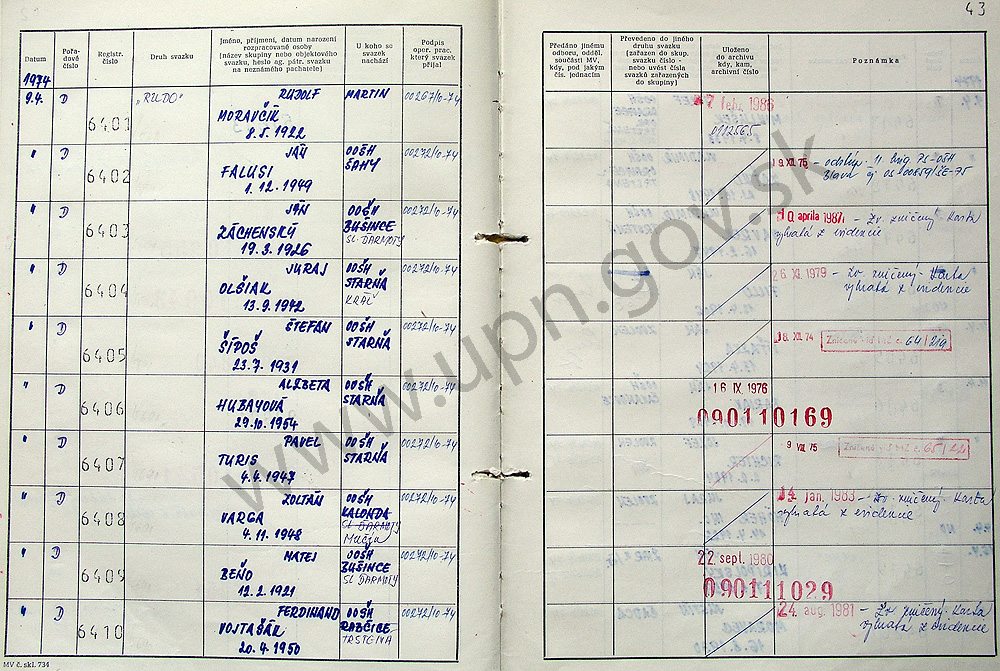 43
Datum
Pořa-
dové
číslo
Registr.
číslo
Druh svazku
Jméno, příjmení, datum narození
rozpracované osoby
(název skupiny nebo objektového
svazku, heslo ag. pátr. svazku
na neznámého pachatele)
U koho se
svazek
nachází
Podpis
oper. prac.
který svazek
přijal
Předáno jinému
odboru, odděl.
součásti MV,
kdy, pod jakým
čís. jednacím
Převedeno do jiného
druhu svazku
(zařazen do skup.
svazku číslo -
nebo uvést čísla
svazků zařazených
do skupiny)
Uloženo
do archivu
kdy, kam,
archivní číslo
Poznámka
1974
9.4. D 6401 "RUDO" RUDOLF MARTIN 00267/10-74
MORAVČÍK
8.5.1922
7 feb. 1986
0112565
" D 6402 JÁN OOŠH 00272/10-74
FALUSI ŠAHY
1.12.1949
19 XII 75
" D 6403 JÁN OOŠH 00272/10-74
ZÁCHENSKÝ BUŠINCE
19.3.1926 SL. ĎARMOTY
10. apríla 1987 - Zv. zničený. Karta
vybratá z evidencie
" D 6404 JURAJ OOŠH 00272/10-74
OLŠIAK STARŇA
13.9.1942 KRÁĽ
26 XI. 1979 - Zv. zničený. Karta
vybratá z evidencie
" D 6405 ŠTEFAN OOŠH 00272/10-74
ŠÍPOŠ STARŇA
23.7.1931
18. XII. 74
" D 6406 ALŽBETA OOŠH 00272/10-74
HUBAYOVÁ STARŇA
29.10.1954
16 IX. 1976
090110169
" D 6407 PAVEL OOŠH 00272/10-74
TURIS STARŇA
4.4.1947
9 VII. 75
" D 6408 ZOLTÁN OOŠH 00272/10-74
VARGA KALONDA
4.11.1948 SL ĎARMOTY
14. jan. 1983 - Zv. zničený. Karta
vybratá z evidencie
" D 6409 MATEJ OOŠH 00272/10-74
BEŇO BUŠINCE
12.2.1921 SL ĎARMOTY
22. sept. 1980
090111029
" D 6410 FERDINAND OOŠH 00272/10-74
VOJTAŠÁK RABČICE
20.4.1950 TRSTENÁ
24. aug. 1981 - Zv. zničený. Karta
vybratá z evidencie
MV č. skl. 734
www.upn.gov.sk